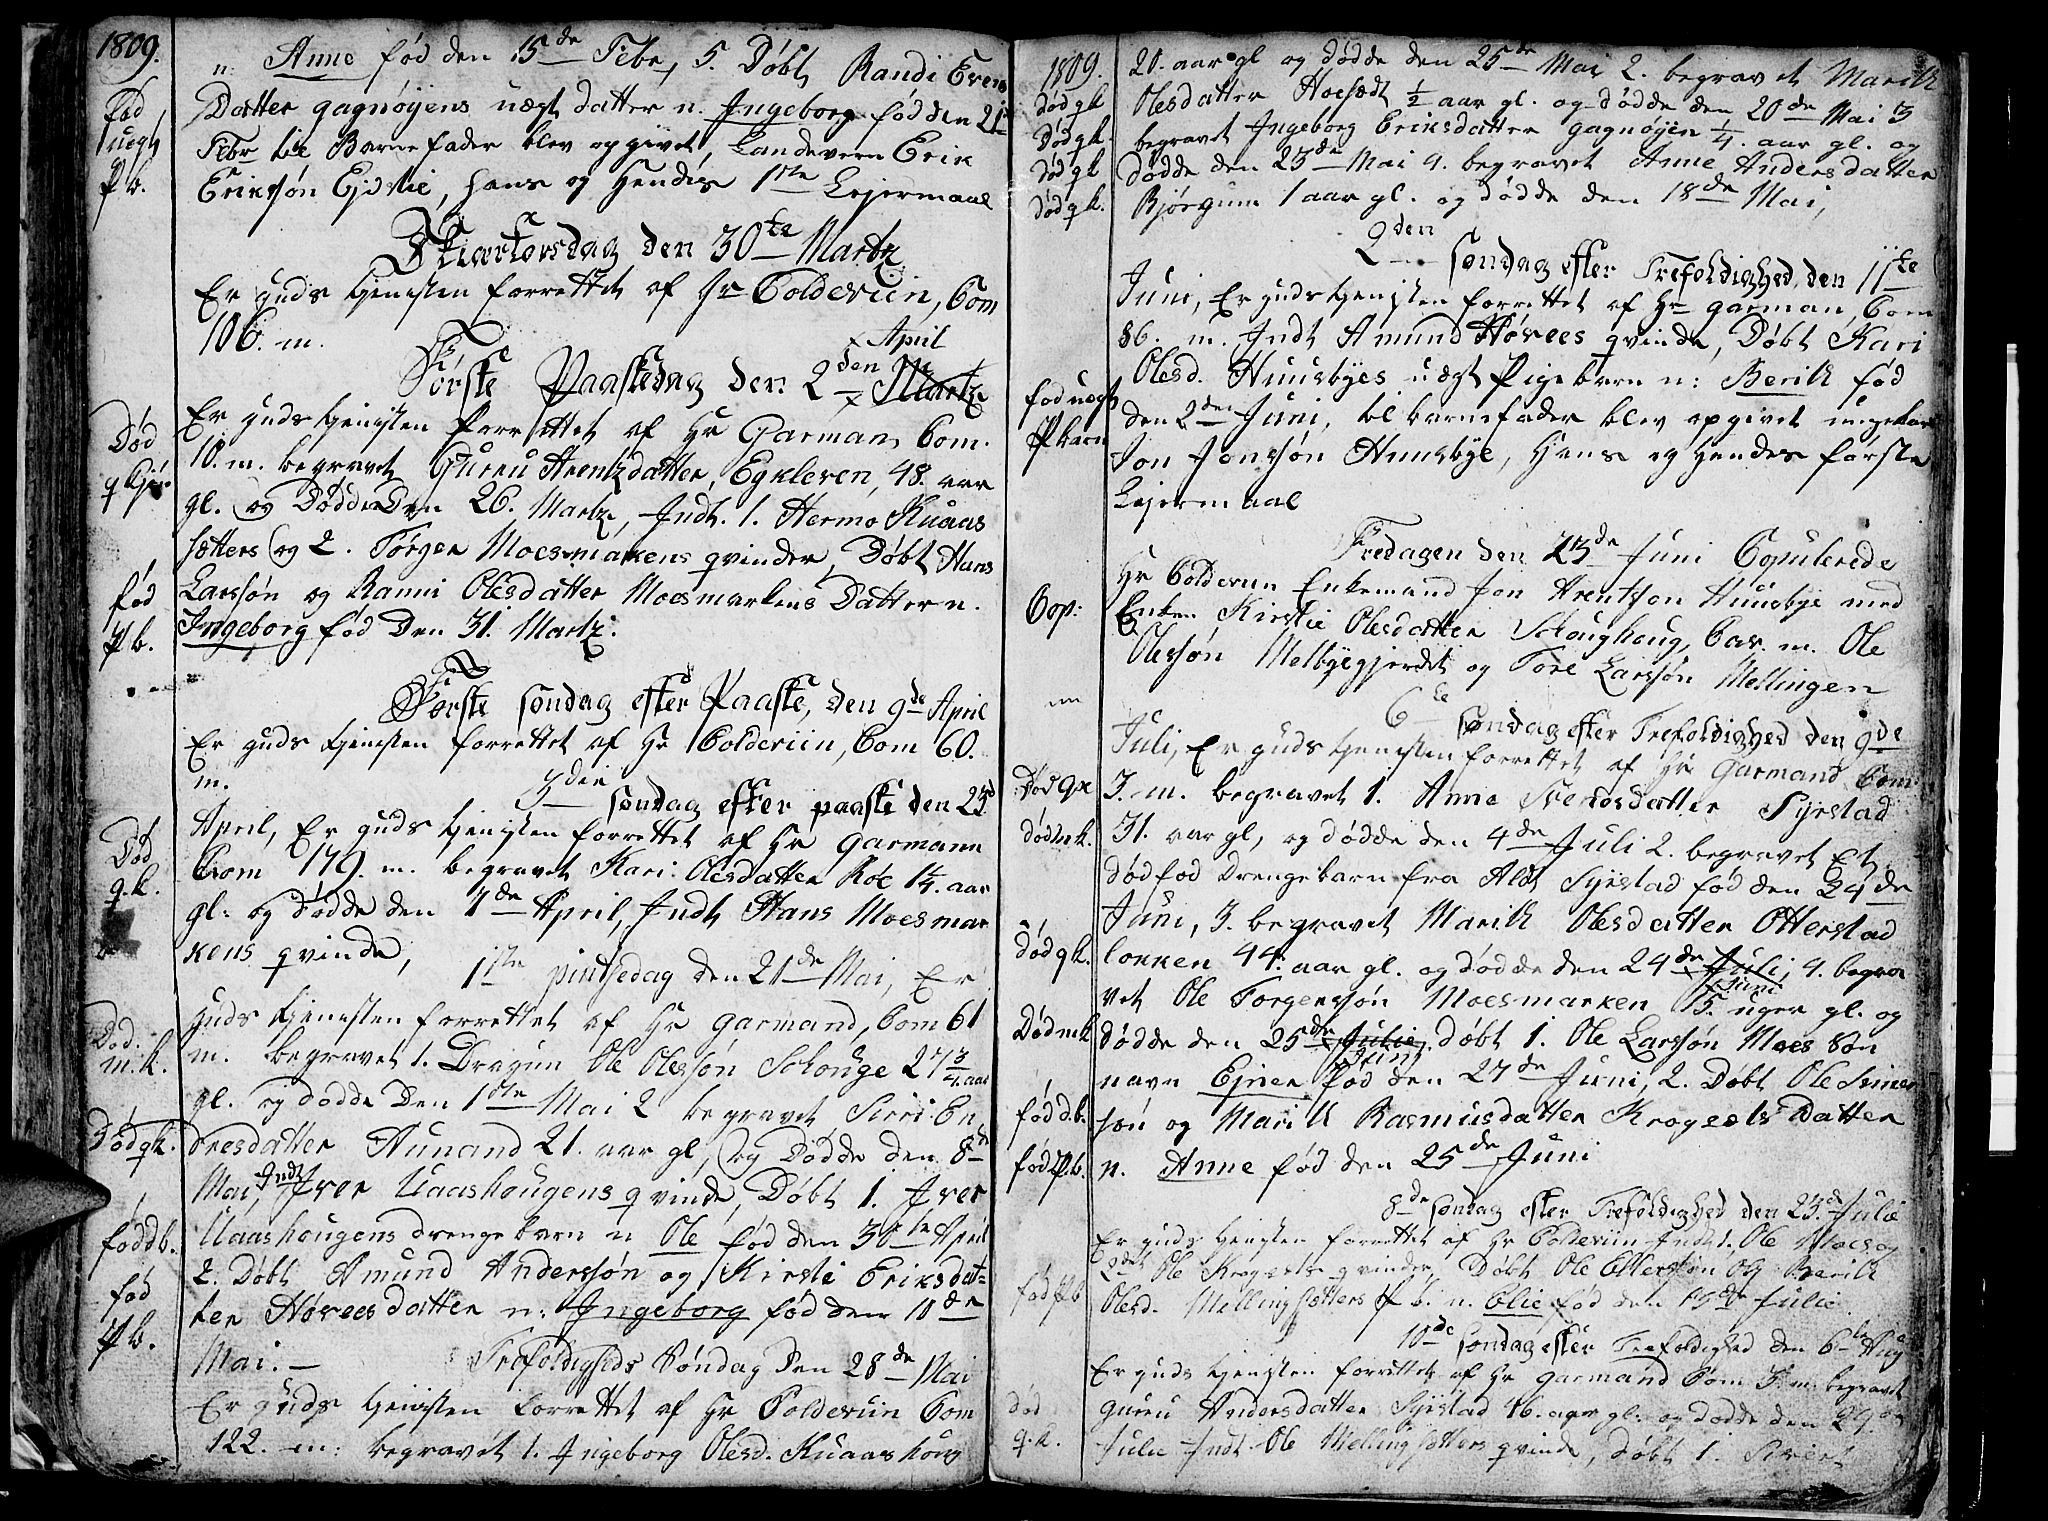 1809.
n: Anne fød den 15de Febr, 5. Døbt Randi Svens
fød
Datter gagnøyens uægt datter n. Ingeborg fød den 21de
uægt
Febr til Barnefader blev opgivet, Landevern Erik
P b.
Eriksøn Ejdslie, hans og Hendis 1ste Lejermaal
Skiærtorsdag den 30te Martz
Er guds tjenisten forrettet af Hr Colderiin, Com
106. m.
April
Første Paaskedag den 2den Martz
Er guds tjenisten Forrettet af Hr Garman, Com.
Død
10. m. begravet Guruu Arentzdatter, Egkleven, 48. aar
q kjøn
gl. og Døde Den 26. Martz, Indt. 1. Hermo Kuaas
sætters og 2. Tørger Moesmarkens qvinder, Døbt Hans
Larssøn og Ranni Olesdatter Moesmarkens Datter n.
fød
P b.
Ingeborg fød Den 31. Martz.
Første søndag efter Paaske, den 9de April
Er guds tjenisten forrettet af Hr Colderiin, Com 60.
m.
3die søndag efter paaske den 23d
April, Er guds tjenisten forrettet af Hr Garmann
Død
Com 179. m. begravet Kari Olesdatter Røe 1¼. aar
q. k.
gl. og dødde den 7de April, Indt Hans Moesmar
kens qvinde,
1ste pintsedag den 21de Mai, Er
guds tjenisten forrettet af Hr Garmand, Com 61
Død.
m. begravet 1. Dragun Ole Olessøn Schouge 27¾. aar
m. k.
gl. og dødde Den 1ste Mai 2 begravet Siri En
Død qk.
dresdatter Aunand 21. aar gl, og Dødde den 8de
Mai, Indt Iver Uaashougens qvinde, Døbt 1. Iver
fød db.
Uaashougens drenge barn n Ole fød den 30te April
fød
2. Døbt Amund Anderssøn og Kirsti Eriksdat-
P b.
ter Høvees datter n: Ingeborg fød den 10de
Mai. —
Trefoldigheds Søndag Den 28de Mai
Er guds tjenisten forrettet af Hr Colderiin Com
122. m: begravet 1. Ingeborg Olesd. Kuaashoug
1809.
20. aar gl og dødde den 25de Mai 2. begravet Marith
Død qk
Olesdatter Hoesædt ½ aar gl. og dødde den 20de Mai 3
Død qk.
begravet Ingeborg Eriksdatter gagnøyen ¼. aar gl. og
Død qk
dødde den 23de Mai 4. begravet Anne Andersdatter
Død qk.
Bjørgum 1 aar gl. og dødde den 18de Mai,
2den søndag efter Trefoldighed, den 11te
Juni, Er guds tjenisten forrettet af Hr Garman, Com
86. m. Indt Amund Høvees qvinde, Døbt Kari
Olesd. Huusbyes uægt Pigebarn n: Berith fød
fød uægt
den 2den Juni, til barnefader blev opgivet ungekarl
P barn
Jon Jonssøn Huusbye, Hans og Hendes første
Lejermaal
Fredagen den 23de Juni Copulerede
Hr Colderun Enkemand Jon Arentsøn Huusbye med
Cop:
Enken Kirstie Olesdatter Schoughoug, Cav. m. Ole
Olessøn Melbyegjerdet og Tore Larssøn Mellingen
6te søndag efter Trefoldighed den 9de
Juli, Er guds tjenisten forrettet af Hr Garmand Com
Død qk
3. m. begravet 1. Anne Svendsdatter Syrstad
død m k.
31. aar gl, og dødde den 4de Juli 2. begravet Et
dødfød Drengebarn fra Aldt Syrstad fød den 29de
Juni, 3. begravet Marith Olesdatter Otterstad
død qk.
løkken 44. aar gl. og dødde den 24de Juli, 4. begra
Juni
vet Ole Torgerssøn Moesmarken 5. uger gl. og
Død mk
dødde den 25de Julie, døbt 1. Ole Larssøn Moes søn
Juni
navn Ejner fød den 27de Juni, 2. Døbt Ole Iver
fød d.b.
søn og Marith Rasmusdatter Krogsæts Datter
fød P.b.
n. Anne fød den 25de Juni
8de søndag efter Trefoldighed den 23de Julie
Er guds tjenisten forrettet af Hr Colderiin Indt 1. Ole Moes og
2det Ole Krogsæts qvinder, Døbt Ole Ellerssøn og Berith
fød P.b
Olesd. Mellingsætters P b. n. Elie fød den 19de Julie
10de søndag efter Trefoldighed den 6te Aug
Er guds tjenisten forrettet af Hr Garmand Com 3. m. begravet
død
guruu Andersdatter Syrstad 16. aar gl. og dødde den 29de
q. k.
Julie Indt. Ole Mellingsætters qvinde, Døbt 1. Sivert